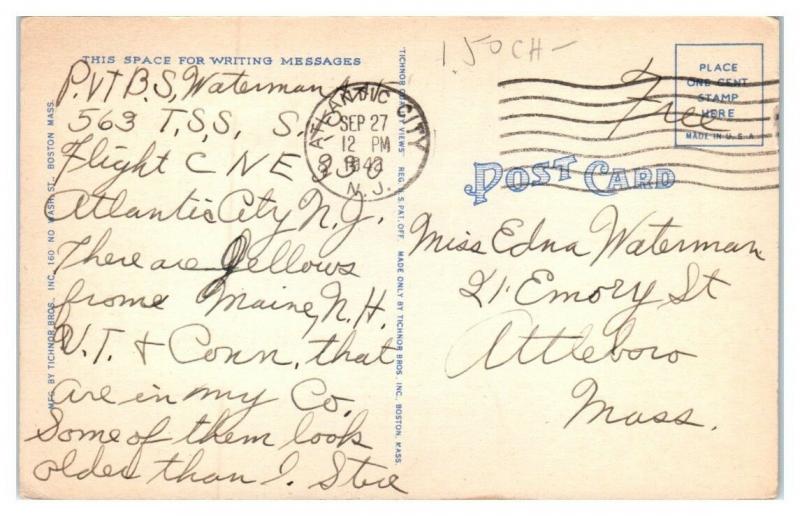 THIS SPACE FOR WRITING MESSAGES
P.VT B.S, Waterman
563 T.S.S, S.
Flight C NE
Atlantic City N.J.
There are fellows
frome Maine, N.H.
V.T. & Conn. that
are in my Co.
Some of them look
older than I. Steve
MFG. BY TICHNOR BROS., INC. 160 NO. WASH. ST., BOSTON MASS.
TICHNOR QUALITY VIEWS REG. U. S. PAT. OFF. MADE ONLY BY TICHNOR BROS. INC., BOSTON, MASS.
1.50 CH-
ATLANTIC CITY
SEP 27
12 PM
N. J.
Free
PLACE
ONE CENT
STAMP
HERE
MADE IN U.S.A
POST CARD
Miss Edna Waterman
21 Emory St
Attleboro
Mass.